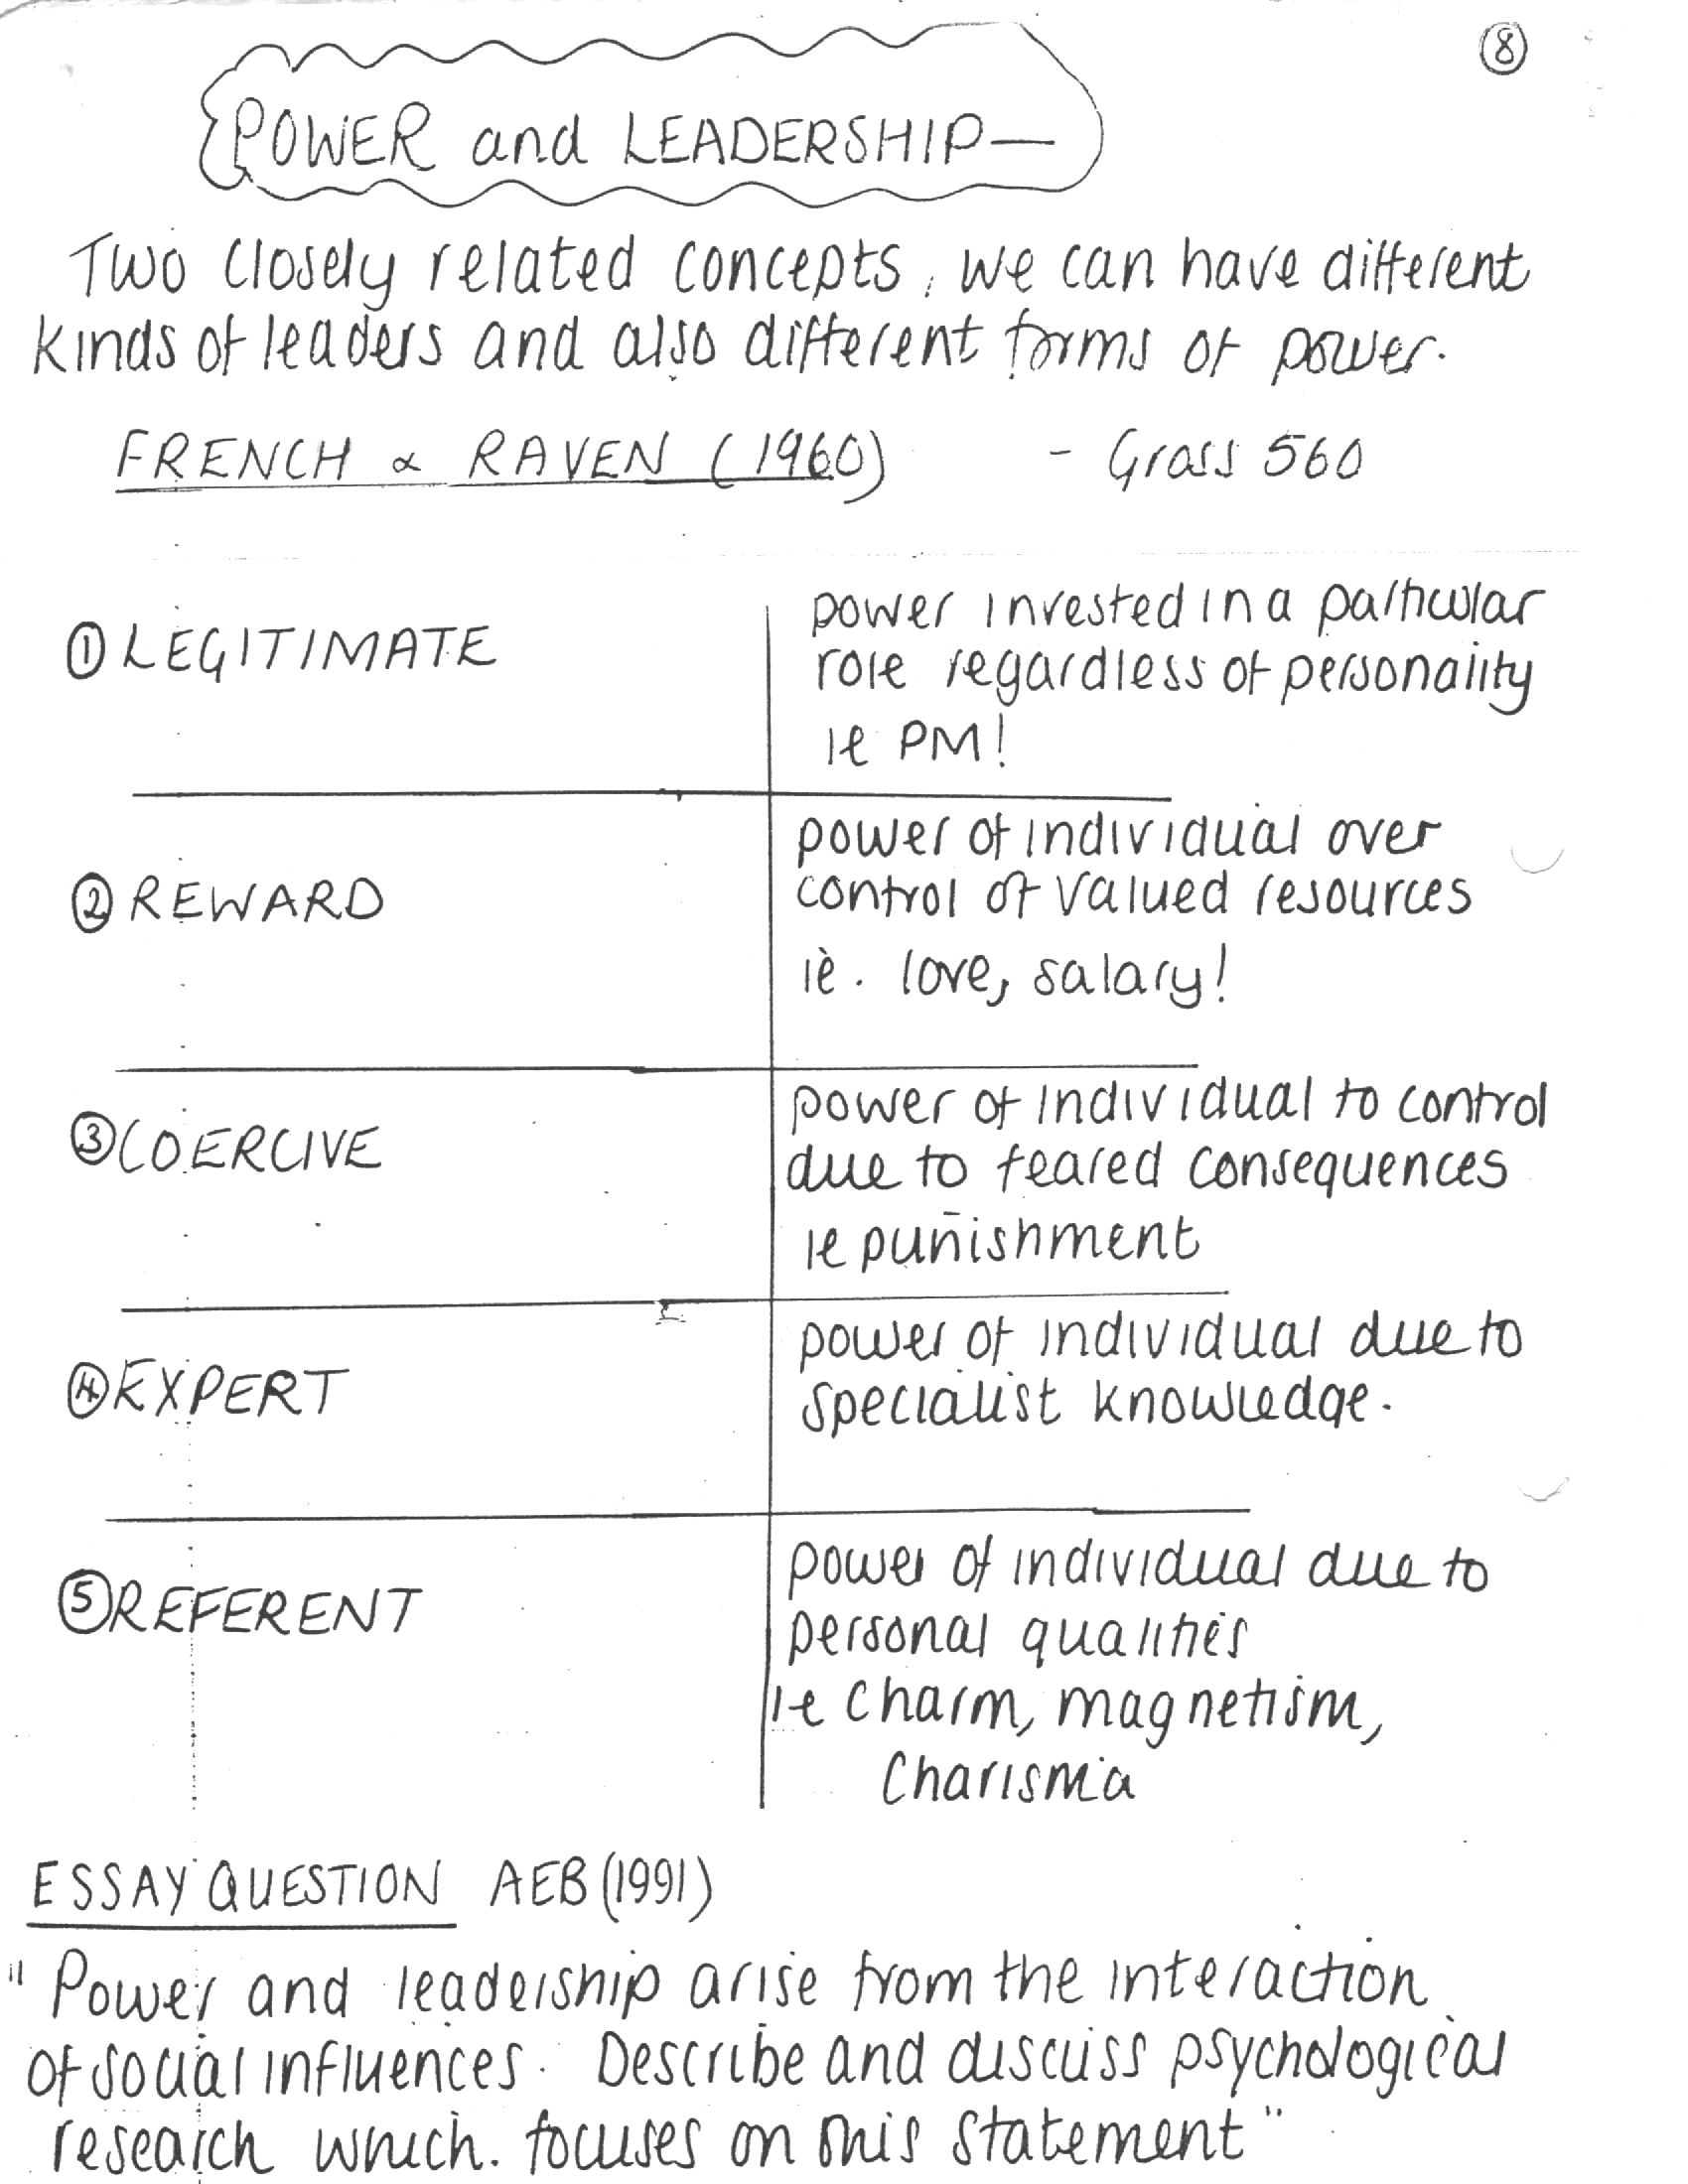 ⑧
POWER and LEADERSHIP—
Two closely related concepts, we can have different
kinds of leaders and also different forms of power.
FRENCH & RAVEN (1960) - Gross 560
① LEGITIMATE
power invested in a particular
role regardless of personality
ie PM!
② REWARD
power of individual over
control of valued resources
ie. love, salary!
③ COERCIVE
power of individual to control
due to feared consequences
ie punishment
④ EXPERT
power of individual due to
specialist knowledge.
⑤ REFERENT
power of individual due to
personal qualities
ie charm, magnetism,
charisma
ESSAY QUESTION AEB (1991)
"Power and leadership arise from the interaction
of social influences. Describe and discuss psychological
research which. focuses on this statement"